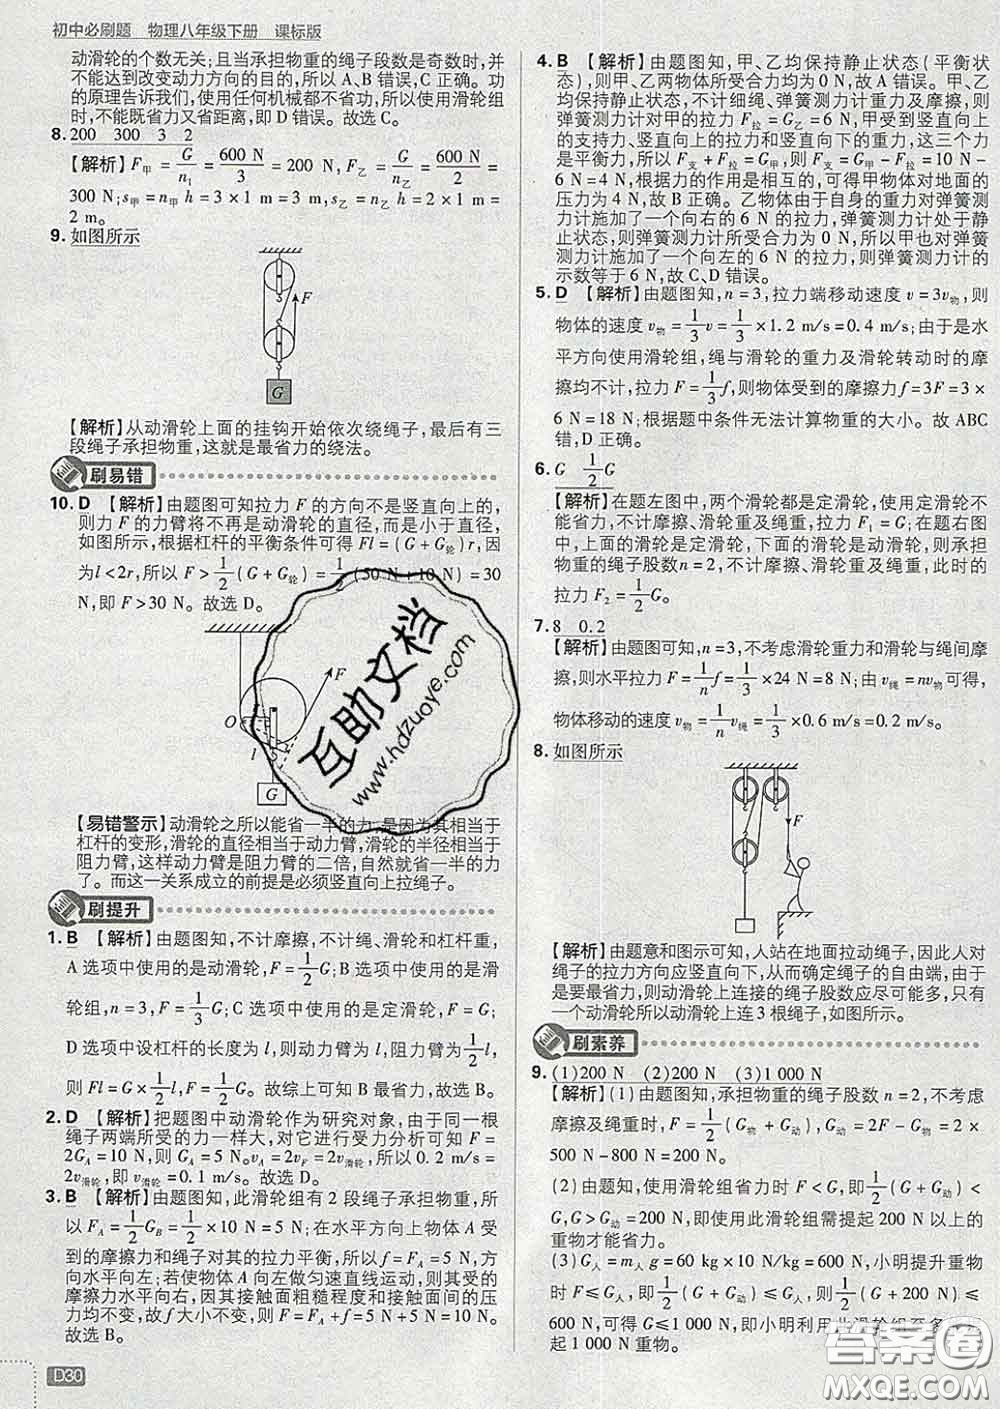 初中必刷题 物理八年级下册 课标版
动滑轮的个数无关；且当承担物重的绳子段数是奇数时,并
不能达到改变动力方向的目的,所以A、B错误,C正确。功
的原理告诉我们,使用任何机械都不省功,所以使用滑轮组
时,不能既省力又省距离,即D错误。故选C。
8. 200 300 3 2
【解析】F甲 = G/n₁ = 600 N/3 = 200 N, F乙 = G/n乙 = 600 N/2 =
300 N; s甲 = n甲 h = 3 × 1 m = 3 m, s乙 = n乙 h = 2 × 1 m =
2 m。
9. 如图所示
F
G
【解析】从动滑轮上面的挂钩开始依次绕绳子,最后有三
段绳子承担物重,这就是最省力的绕法。
刷易错
10. D 【解析】由题图可知拉力 F 的方向不是竖直向上的,
则力 F 的力臂将不再是动滑轮的直径,而是小于直径,
如图所示,根据杠杆的平衡条件可得 Fl = (G + G轮) r, 因
为 l < 2r, 所以 F > 1/2 (G + G轮) = 1/2 (50 N + 10 N) = 30
N, 即 F > 30 N。故选 D。
F
O
l
G
【易错警示】动滑轮之所以能省一半的力,是因为其相当于
杠杆的变形,滑轮的直径相当于动力臂,滑轮的半径相当于
阻力臂,这样动力臂是阻力臂的二倍,自然就省一半的力
了。而这一关系成立的前提是必须竖直向上拉绳子。
刷提升
1. B 【解析】由题图知,不计摩擦,不计绳、滑轮和杠杆重,
A 选项中使用的是动滑轮, F = 1/2 G; B 选项中使用的是滑
轮组, n = 3, F = 1/3 G; C 选项中使用的是定滑轮, F = G;
D 选项中设杠杆的长度为 l, 则动力臂为 l, 阻力臂为 1/2 l,
则 Fl = G × 1/2 l, F = 1/2 G。故综上可知 B 最省力,故选 B。
2. D 【解析】把题图中动滑轮作为研究对象,由于同一根
绳子两端所受的力一样大,对它进行受力分析可知 F =
2G_A = 10 N, 则 G_A = 5 N。v_A = 2v_F = 2v滑轮, 所以 0.2 m/s =
2v滑轮, 即 v滑轮 = 0.1 m/s。故选 D。
3. B 【解析】由题图知,此滑轮组有 2 段绳子承担物重,所
以 F_A = 1/2 G_B = 1/2 × 10 N = 5 N; 在水平方向上物体 A 受
到的摩擦力和绳子对其的拉力平衡,所以 f = F_A = 5 N,
方向水平向左; 若使物体 A 向左做匀速直线运动,则所受的
摩擦力水平向右,因其接触面粗糙程度和接触面间的压
力均不变,故 f 大小不变,则 F = F_A + f = 5 N + 5 N = 10 N。
故选 B。
D30
4. B 【解析】由题图知,甲、乙均保持静止状态(平衡状
态),则甲、乙两物体所受合力均为 0 N, 故 A 错误。甲、乙
均保持静止状态,不计细绳、弹簧测力计重力及摩擦,则弹
簧测力计对甲的拉力 F拉 = G乙 = 6 N, 甲受到竖直向上
的支持力、竖直向上的拉力和竖直向下的重力,这三个力
是平衡力,所以 F支 + F拉 = G甲, 则 F支 = G甲 - F拉 = 10 N -
6 N = 4 N, 根据力的作用是相互的,可得甲物体对地面的
压力为 4 N, 故 B 正确。乙物体由于自身的重力对弹簧测
力计施加了一个向右的 6 N 的拉力,弹簧测力计处于静
止状态,则弹簧测力计所受合力为 0 N, 所以甲也对弹簧测
力计施加了一个向左的 6 N 的拉力,则弹簧测力计的
示数等于 6 N, 故 C、D 错误。
5. D 【解析】由题图知, n = 3, 拉力端移动速度 v = 3v物, 则
物体的速度 v物 = 1/3 v = 1/3 × 1.2 m/s = 0.4 m/s; 由于是水
平方向使用滑轮组,绳与滑轮的重力及滑轮转动时的摩
擦均不计,拉力 F = 1/3 f, 则物体受到的摩擦力 f = 3F = 3 ×
6 N = 18 N; 根据题中条件无法计算物重的大小。故 ABC
错, D 正确。
6. G 1/2 G
【解析】在题左图中,两个滑轮都是定滑轮,使用定滑轮不
能省力,不计摩擦、滑轮重及绳重,拉力 F₁ = G; 在题右图
中,上面的滑轮是定滑轮,下面的滑轮是动滑轮,则承担
物重的绳子股数 n = 2, 不计摩擦、滑轮重及绳重,此时的
拉力 F₂ = 1/2 G。
7. 8 0.2
【解析】由题图可知, n = 3, 不考虑滑轮重力和滑轮与绳间摩
擦,则水平拉力 F = 1/n f = 1/3 × 24 N = 8 N; 由 v绳 = nv物 可得,
物体移动的速度 v物 = 1/n v绳 = 1/3 × 0.6 m/s = 0.2 m/s。
8. 如图所示
F
【解析】由题意和图示可知,人站在地面拉动绳子,因此人对
绳子的拉力方向应竖直向下,从而确定绳子的自由端,由于
是要最省力,则动滑轮上连接的绳子股数应尽可能多,只有
一个动滑轮所以动滑轮上连 3 根绳子,如图所示。
刷素养
9. (1) 200 N (2) 200 N (3) 1 000 N
【解析】(1) 由题图知,承担物重的绳子股数 n = 2, 不考虑
摩擦及绳重时, F = 1/2 (G物 + G动), G动 = 2F - G物 = 2 ×
500 N - 800 N = 200 N。
(2) 由题知,使用滑轮组省力时 F < G, 即 1/2 (G + G动) <
G, G > G动 = 200 N, 即使用此滑轮组需提起 200 N 以上的
重物才能省力。
(3) G人 = m人 g = 60 kg × 10 N/kg = 600 N, 小明提升重物
时 F ≤ G人, 即 F = 1/2 (G + G动) ≤ G人, 1/2 (G + 200 N) ≤
600 N, 可得 G ≤ 1 000 N, 即小明利用此滑轮组至多能提
起 1 000 N 重物。
互助文档
www.hdzuoye.com
答案圈
MXQE.COM